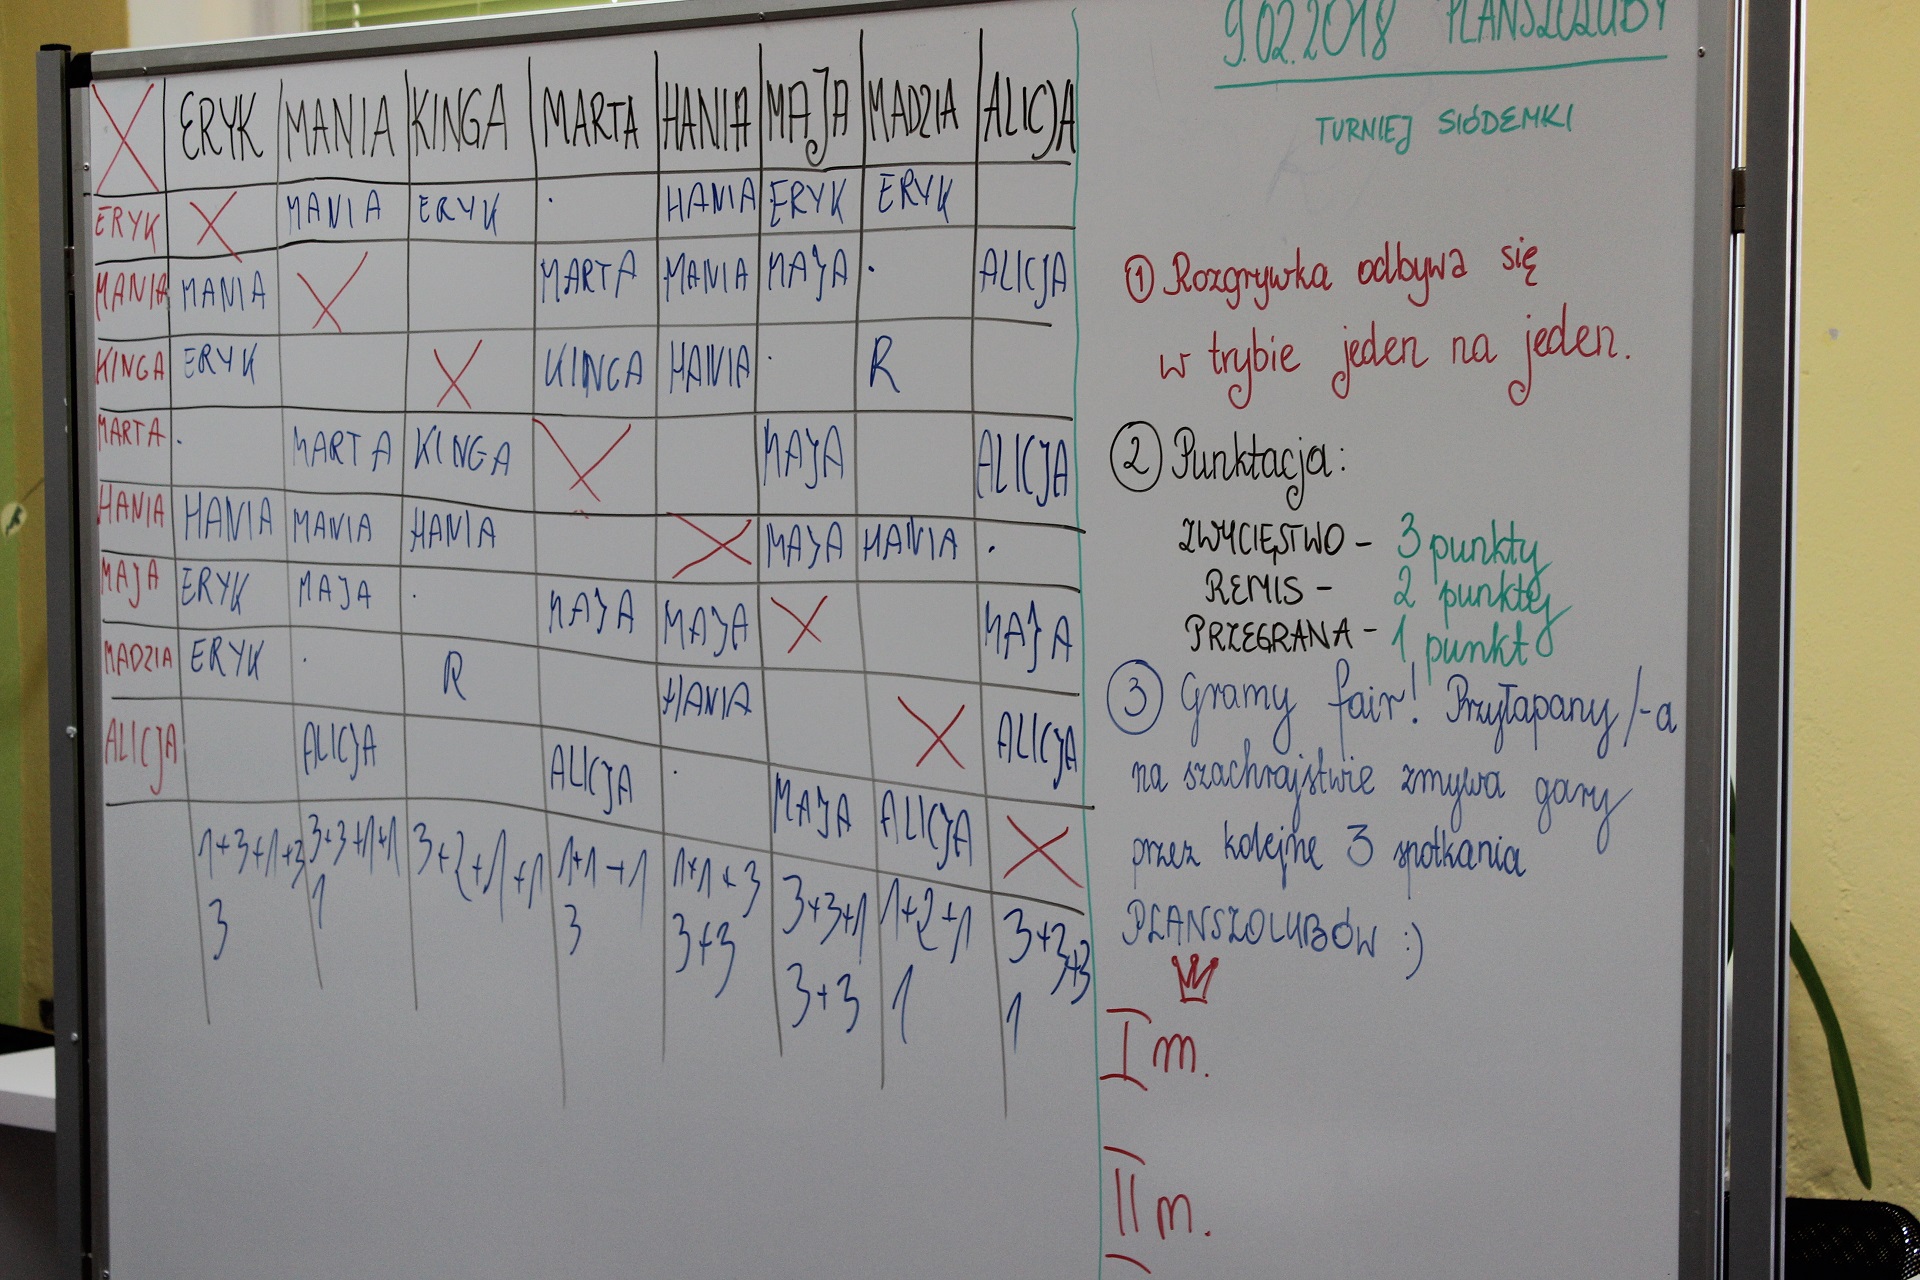 ERYK MANIA KINGA MARTA HANIA MAJA MADZIA ALICJA
ERYK MANIA ERYK HANIA ERYK ERYK
MANIA MANIA MARTA MANIA MAJA ALICJA
KINGA ERYK KINGA HANIA R
MARTA MARTA KINGA MAJA ALICJA
HANIA HANIA MANIA HANIA MAJA HANIA
MAJA ERYK MAJA MAJA MAJA MAJA
MADZIA ERYK R HANIA ALICJA
ALICJA ALICJA ALICJA MAJA ALICJA
1+3+1+3 3+3+1+1 3+2+1+1 1+1+1 1+1+3 3+3+1 1+2+1 3+3+3
3 1 3 3+3 3+3 1 1
9.02.2018 PLANSZOLUBY
TURNIEJ SIÓDEMKI
① Rozgrywka odbywa się
w trybie jeden na jeden.
② Punktacja:
ZWYCIĘSTWO - 3 punkty
REMIS - 2 punkty
PRZEGRANA - 1 punkt
③ Gramy fair! Przyłapany/-a
na szachrajstwie zmywa gary
przez kolejne 3 spotkania
PLANSZOLUBÓW :)
I m.
II m.